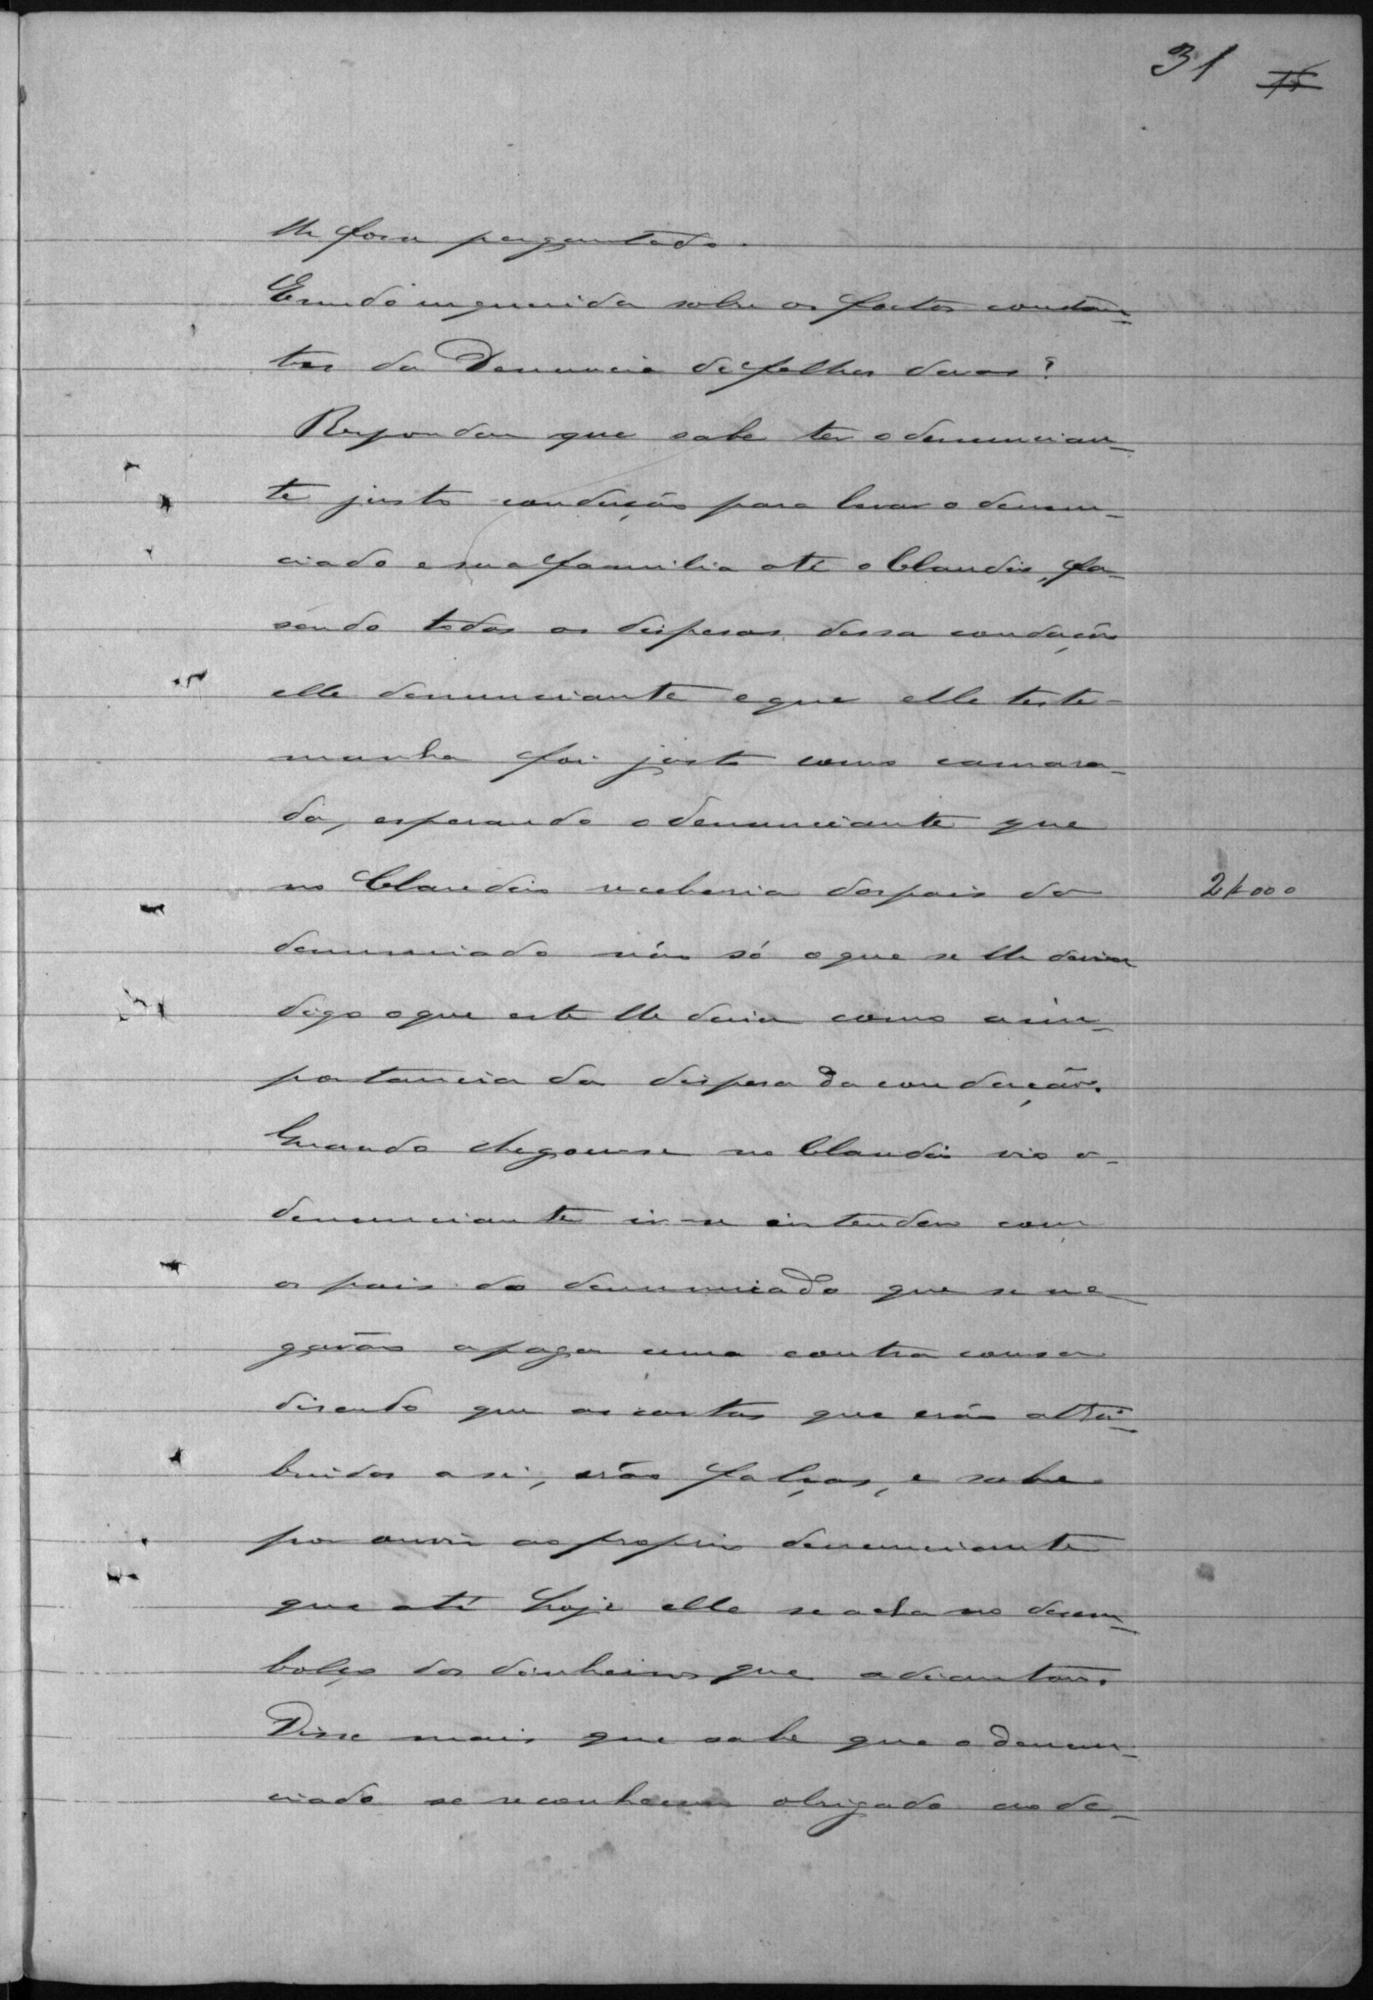 31 15
lhe fora perguntado.
E sendo inquerida sobre os factos constan-
tes da Denuncia de folhas duas?
Respondeu que sabe ter o denuncian-
te justo condução para levar o denun-
ciado e sua familia até o Claudio, fa-
sendo todas as despesas dessa condução
elle denunciante e que elle teste-
munha foi justo como camara-
da, esperando o denunciante que
no Claudio receberia dos pais do 2$000
denunciado não só o que se lhe devia
digo o que este lhe devia como a im-
portancia da despesa da condução.
Quando chegou-se no Claudio vio o
denunciante ir-se entender com
os pais do denunciado que se ne-
garão a pagar uma e outra cousa
disendo que as cartas que erão attri-
buidas a si, erão falças, e sabe
por ouvir ao proprio denunciante
que até hoje elle se acha no desem-
bolço dos dinheiros que adiantou.
Disse mais que sabe que o denun-
ciado se reconheceu obrigado ao de-